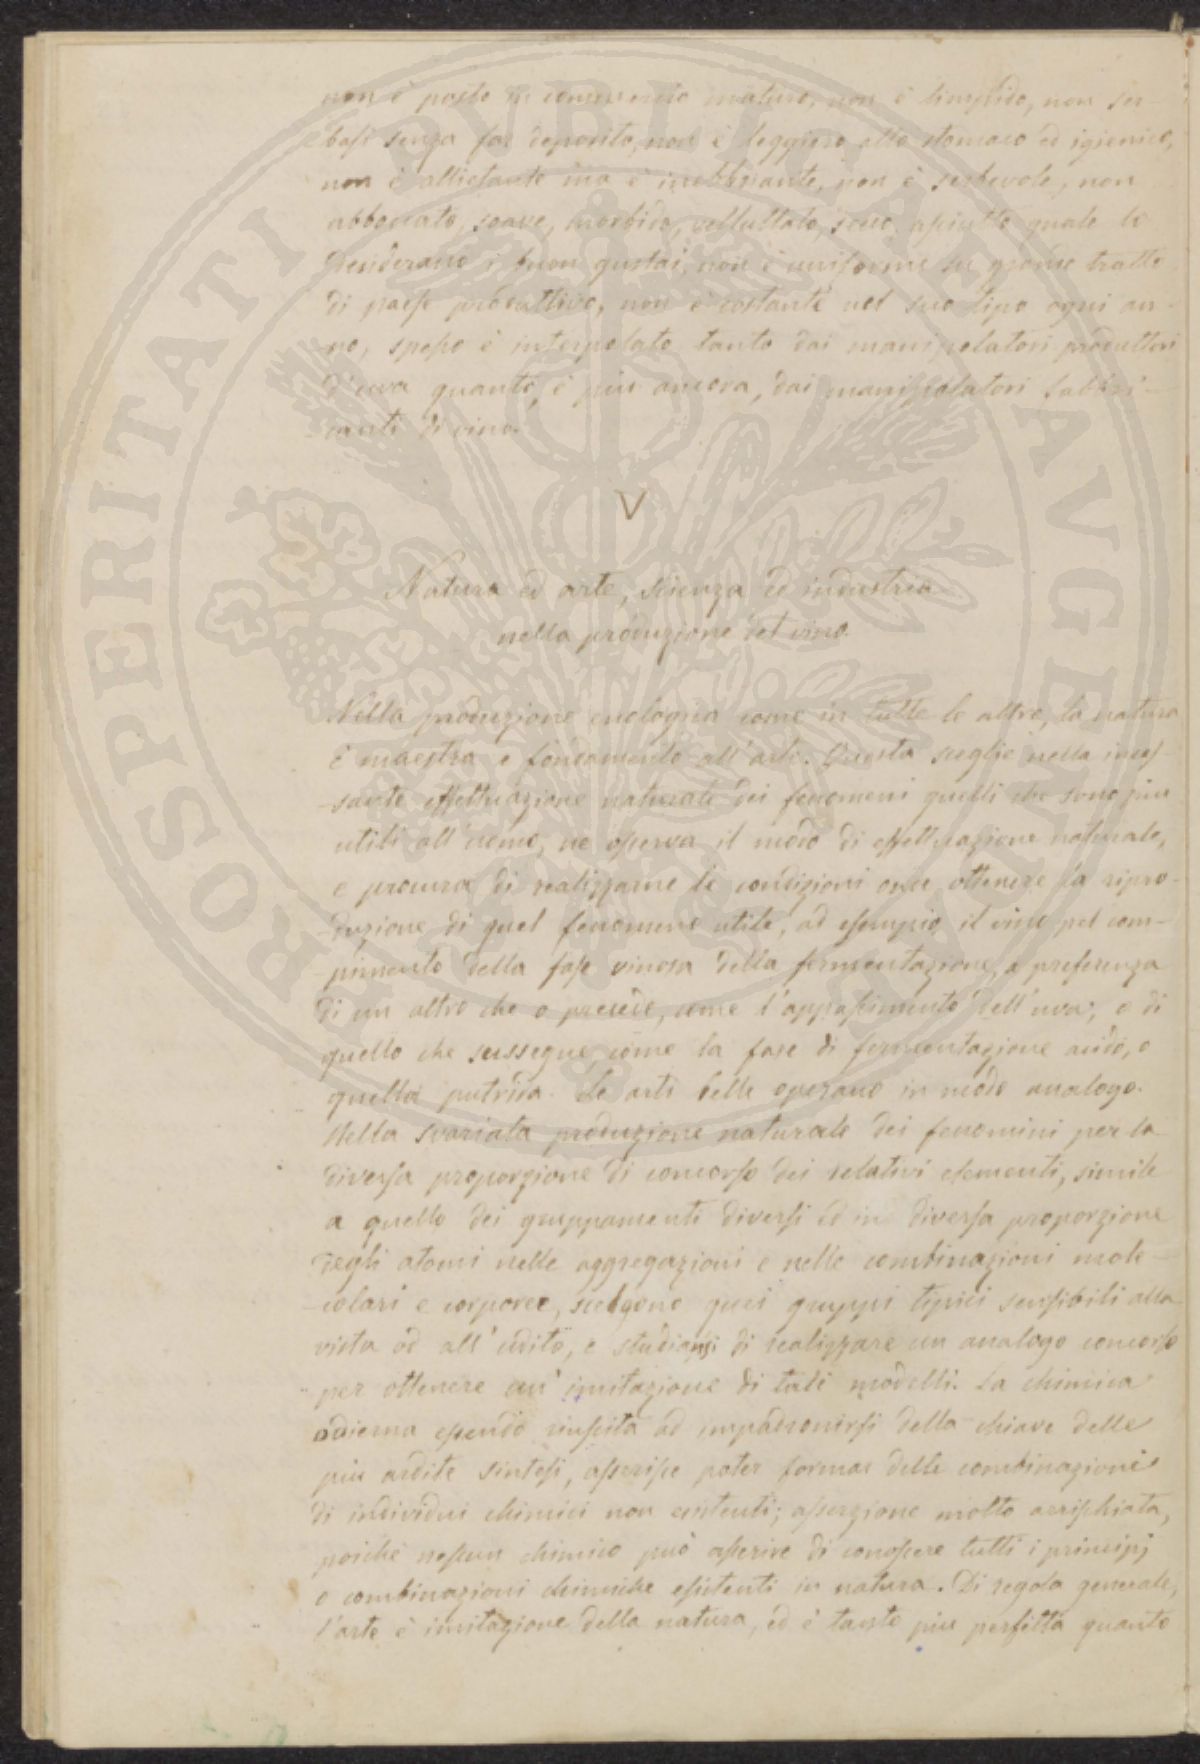 non è posto in commercio maturo, non è limpido, non ser-
basi senza far deposito, non è leggiero allo stomaco ed igienico,
non è allietante ma è inebbriante, non è serbevole, non
abboccato, soave, morbido, vellutato, secco, asciutto quale lo
desiderano i buon gustai, non è uniforme su grande tratto
di paese produttivo, non è costante nel suo tipo ogni an-
no, spesso è interpolato tanto dai manipolatori produttori
d'uva quanto, e più ancora, dai manipolatori fabbri-
canti di vino.
V
Natura ed arte, scienza ed industria
nella produzione del vino
Nella produzione enologica come in tutte le altre, la natura
è maestra e fondamento all'arte. Questa sceglie nella inces-
sante effettuazione naturale dei fenomeni quelli che sono più
utili all'uomo, ne osserva il modo di effettuazione naturale,
e procura di realizzarne le condizioni onde ottenere la ripro-
duzione di quel fenomeno utile, ad esempio il vino pel com-
pimento della fase vinosa della fermentazione, a preferenza
di un altro che o precede, come l'appassimento dell'uva, o di
quello che sussegue, come la fase di fermentazione acida, o
quella putrida. Le arti belle operano in modo analogo.
Nella svariata produzione naturale dei fenomini per la
diversa proporzione di concorso dei relativi elementi, simile
a quello dei gruppamenti diversi ed in diversa proporzione
degli atomi nelle aggregazioni e nelle combinazioni mole-
colari e corporee, scelgono quei gruppi tipici sensibili alla
vista od all'udito, e studiansi di realizzare un analogo concorso
per ottenere un'imitazione di tali modelli. La chimica
odierna essendo riuscita ad impadronirsi della chiave delle
più ardite sintesi, asserisce poter formar delle combinazioni
di individui chimici non esistenti; asserzione molto arrischiata,
poichè nessun chimico può asserire di conoscere tutti i principj
o combinazioni chimiche esistenti in natura. Di regola generale,
l'arte è imitazione della natura, ed è tanto più perfetta quanto
PROSPERITATI PVBLICAE AVGENDAE